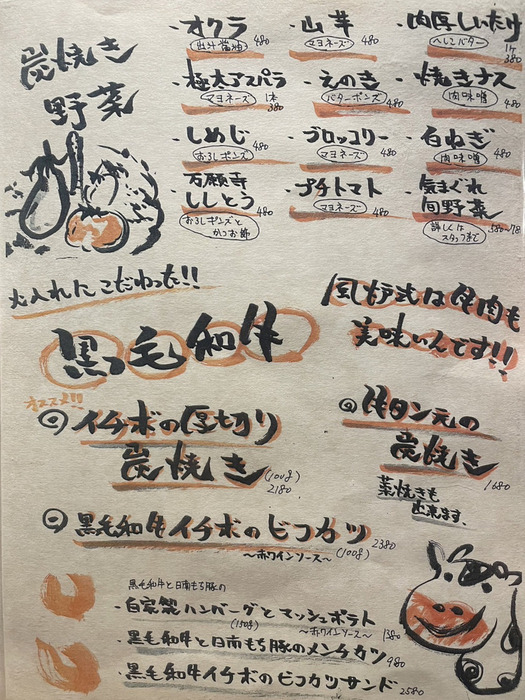 炭焼き
野菜
・オクラ
出汁醤油 480
・山芋
マヨネーズ 480
・肉厚しいたけ
へしこバター 1ケ 380
・極太アスパラ
マヨネーズ 1本 380
・えのき
バターポンズ 480
・焼きナス
肉味噌 480
・しめじ
おろしポンズ 480
・ブロッコリー
マヨネーズ 480
・白ねぎ
肉味噌 480
・万願寺
ししとう
おろしポンズと
かつお節 480
・プチトマト
マヨネーズ 480
・気まぐれ
旬野菜
詳しくは
スタッフまで 580~78
火入れにこだわった!!
黒毛和牛
風炉式は牛肉も
美味いんです!!
オススメ!!
イチボの厚切り
炭焼き (100g)
2180
牛タン元の
炭焼き 1680
藁焼きも
出来ます。
黒毛和牛イチボのビフカツ 2380
~赤ワインソース~ (100g)
黒毛和牛と日南もち豚の
・自家製ハンバーグとマッシュポテト
(150g) ~赤ワインソース~ 1380
・黒毛和牛と日南もち豚のメンチカツ 980
・黒毛和牛イチボのビフカツサンド 2580